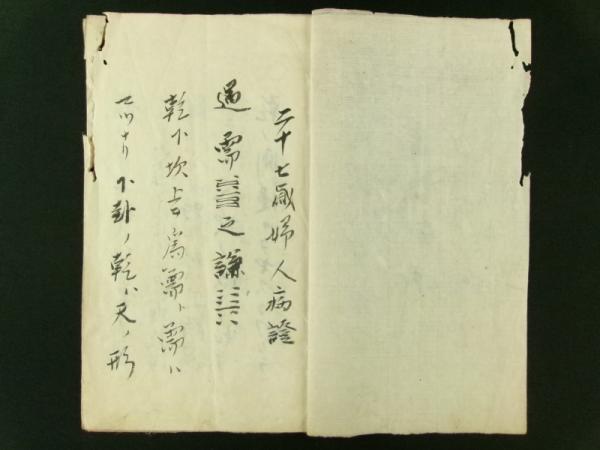 二十七歳婦人病證
遇需䷄之謙䷎
乾下坎上ヲ為需、需ハ
下卦ノ乾ハ天ノ形